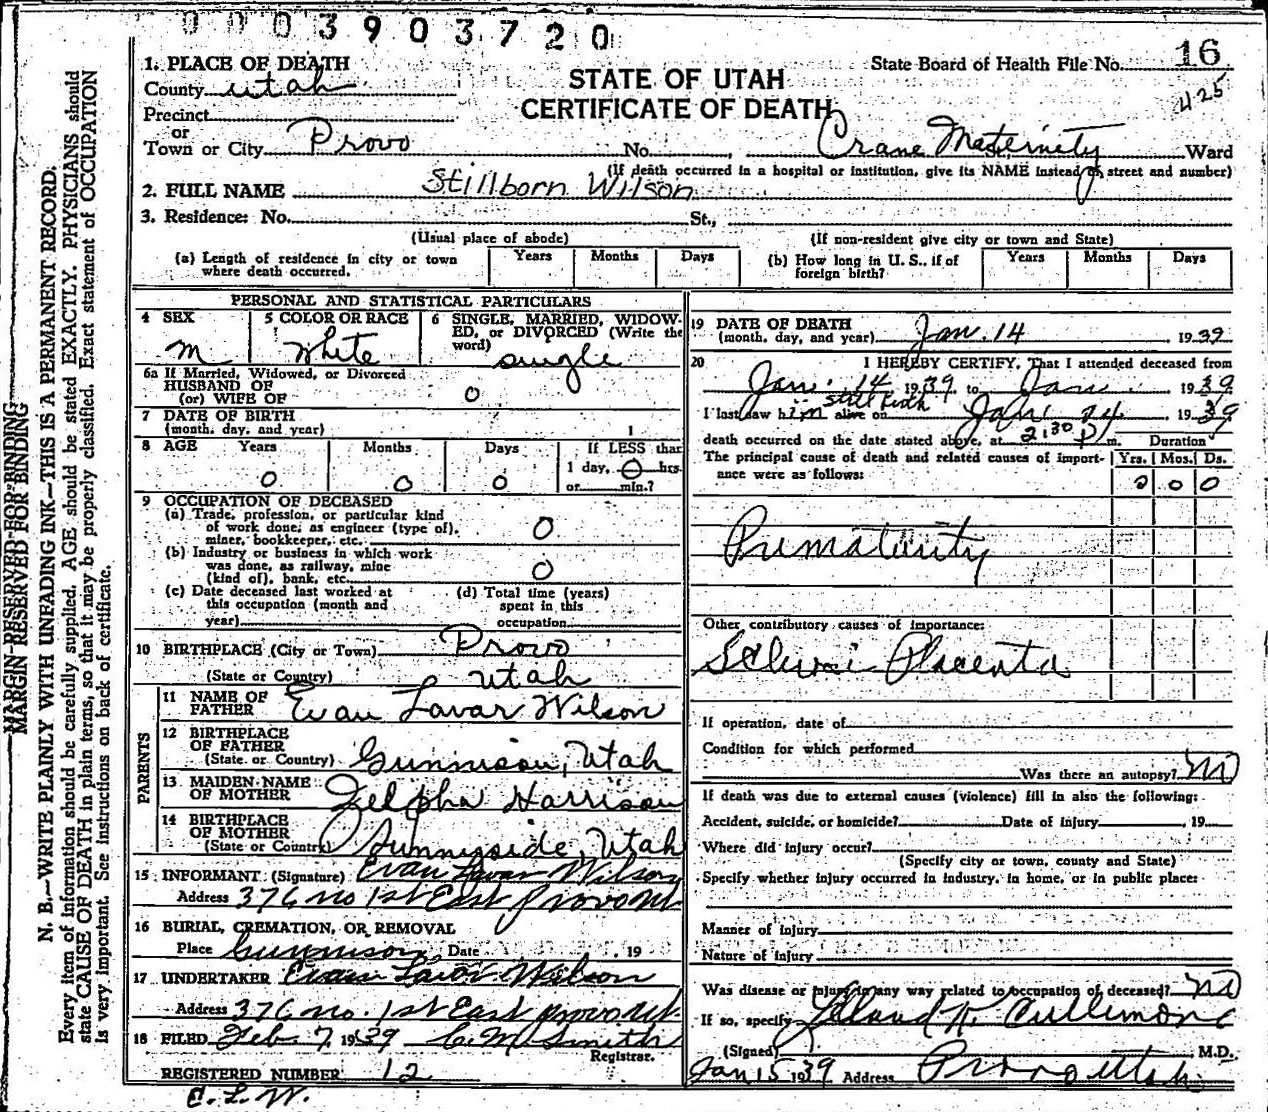 0003903720
1. PLACE OF DEATH
County Utah
Precinct
or
Town or City Provo No. , Crane Maternity Ward
STATE OF UTAH
CERTIFICATE OF DEATH
State Board of Health File No. 16
425
(If death occurred in a hospital or institution, give its NAME instead of street and number)
2. FULL NAME Stillborn Wilson
3. Residence: No. St.,
(Usual place of abode) (If non-resident give city or town and State)
(a) Length of residence in city or town where death occurred. Years Months Days
(b) How long in U. S., if of foreign birth? Years Months Days
PERSONAL AND STATISTICAL PARTICULARS
4 SEX m
5 COLOR OR RACE White
6 SINGLE, MARRIED, WIDOW-
ED, or DIVORCED (Write the
word) single
6a If Married, Widowed, or Divorced
HUSBAND OF
(or) WIFE OF 0
7 DATE OF BIRTH
(month, day, and year)
8 AGE Years Months Days If LESS than
0 0 0 1 day, 0 hrs.
or min.?
9 OCCUPATION OF DECEASED
(a) Trade, profession, or particular kind
of work done, as engineer (type of),
miner, bookkeeper, etc. 0
(b) Industry or business in which work
was done, as railway, mine
(kind of), bank, etc. 0
(c) Date deceased last worked at
this occupation (month and
year)
(d) Total time (years)
spent in this
occupation
10 BIRTHPLACE (City or Town) Provo
(State or Country) Utah
PARENTS
11 NAME OF
FATHER Evan Lavar Wilson
12 BIRTHPLACE
OF FATHER
(State or Country) Gunnison, Utah
13 MAIDEN NAME
OF MOTHER Zelpha Harrison
14 BIRTHPLACE
OF MOTHER
(State or Country) Sunnyside, Utah
15 INFORMANT (Signature) Evan Lavar Wilson
Address 376 no 1st East Provo Ut.
16 BURIAL, CREMATION, OR REMOVAL
Place Gunnison Date , 19
17 UNDERTAKER Evan Lavar Wilson
Address 376 no. 1st East provo Ut.
18 FILED Feb 7, 1939 C. M. Smith
Registrar.
REGISTERED NUMBER 12
C. L. W.
19 DATE OF DEATH
(month, day, and year) Jan. 14, 1939
20 I HEREBY CERTIFY, That I attended deceased from
Jan. 14 1939 to Jan 1939
still birth
I last saw him alive on Jan. 14 1939
death occurred on the date stated above, at 2:30 P m. Duration
The principal cause of death and related causes of import- Yrs. Mos. Ds.
ance were as follows: 0 0 0
Prematurity
Other contributory causes of importance:
Placenta
If operation, date of
Condition for which performed
Was there an autopsy? no
If death was due to external causes (violence) fill in also the following:
Accident, suicide, or homicide? Date of injury , 19
Where did injury occur?
(Specify city or town, county and State)
Specify whether injury occurred in industry, in home, or in public place:
Manner of injury
Nature of injury
Was disease or injury in any way related to occupation of deceased? no
If so, specify
(Signed) Leland K. Cullimore M.D.
Jan 15 1939 Address Provo Utah
MARGIN RESERVED FOR BINDING
MARGIN RESERVED FOR BINDING
N. B.—WRITE PLAINLY WITH UNFADING INK—THIS IS A PERMANENT RECORD.
Every item of information should be carefully supplied. AGE should be stated EXACTLY. PHYSICIANS should
state CAUSE OF DEATH in plain terms, so that it may be properly classified. Exact statement of OCCUPATION
is very important. See instructions on back of certificate.